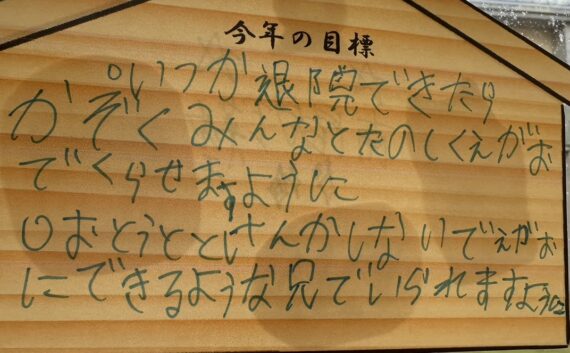 今年の目標
○いつか退院できたら
かぞくみんなとたのしくえがお
でくらせますように
○おとうととけんかしないでえがお
にできるような兄でいられますように